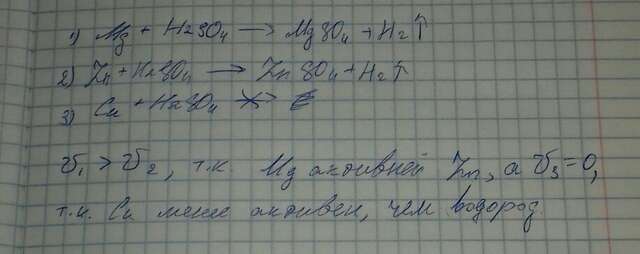 1) Mg + H2SO4 → MgSO4 + H2↑
2) Zn + H2SO4 → ZnSO4 + H2↑
3) Cu + H2SO4 ↛
v1 > v2, т.к. Mg активней Zn, а v3 = 0,
т.к. Cu менее активен, чем водород.